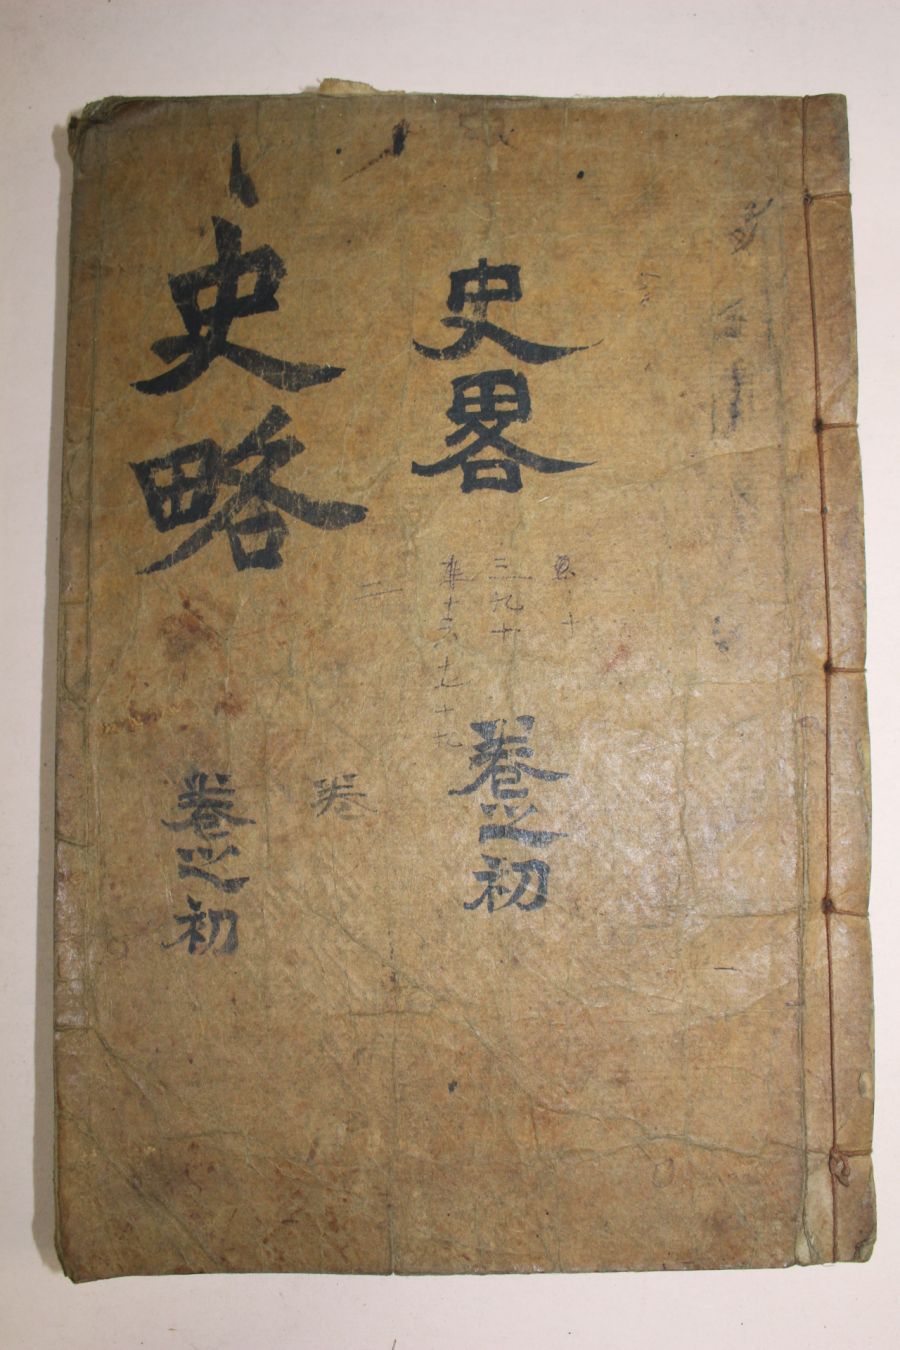 史畧
卷之初
三九十
二
卷
史略
卷之初